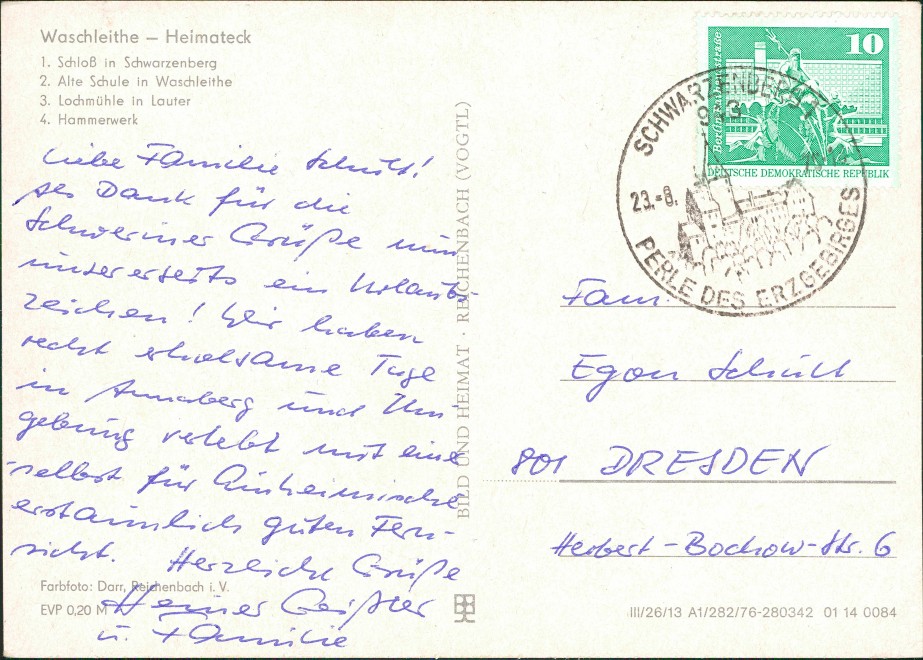 Waschleithe – Heimateck
1. Schloß in Schwarzenberg
2. Alte Schule in Waschleithe
3. Lochmühle in Lauter
4. Hammerwerk
Liebe Familie Schult!
Als Dank für die
Schweriner Grüße nun
unsererseits ein Urlaub-
zeichen! Wir haben
recht erholsame Tage
in Annaberg und Um-
gebung verlebt mit eine
selbst für Einheimische
erstaunlich guten Fern-
sicht. Herzliche Grüße
Heiner Geißler
u. Familie
Farbfoto: Darr, Reichenbach i. V.
EVP 0,20 M
BILD UND HEIMAT · REICHENBACH (VOGTL)
10
DEUTSCHE DEMOKRATISCHE REPUBLIK
SCHWARZENBERG
23.-8.
PERLE DES ERZGEBIRGES
Fam.
Egon Schult
801 DRESDEN
Herbert-Bochow-Str. 6
III/26/13 A1/282/76-280342 01 14 0084